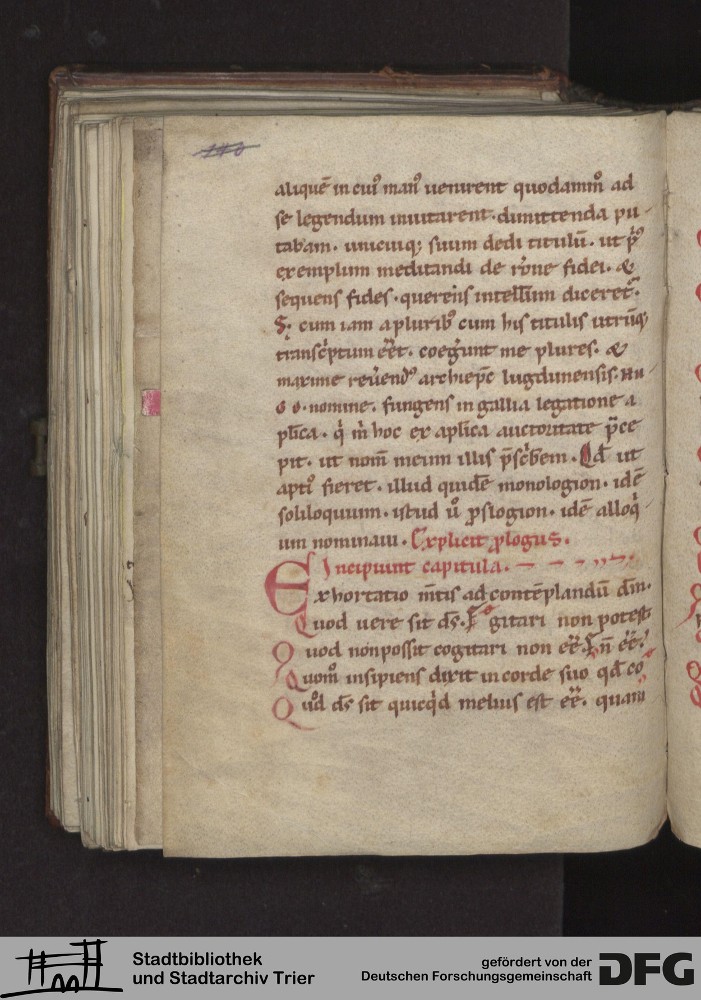 110
aliquē in cuiꝰ manꝰ uenirent quodammͦ ad
se legendum inuitarent. dimittenda pu-
tabam. unicuiq; suum dedi titulū. ut p̃us
exemplum meditandi de rōne fidei. &
sequens fides. querens intellūm diceret̃.
S; cum iam a pluribꝰ cum his titulis utrūq;
transc̓ptum ēet. coeg̓unt me plures. &
maxime reuerendꝰ archiepc̄ lugdunensis. HU
GO. nomine. fungens in gallia legatione a
plica. q̓ m̓ hoc ex aplica auctoritate p̄ce
pit. ut nom̄ meum illis p̄sc̓bem. Qd̄ ut
aptiꝰ fieret. illud quidē monologion. idē
soliloquium. istud ū ꝓslogion. idē alloq̓
um nominaui. Explicit ꝓlogus.
Incipiunt capitula.
Exhortatio m̄tis ad contēplandū dm̄.
Quod uere sit ds̄.
gitari non potest
Quod non possit cogitari non ēe.
Quom̊ insipiens dixit in corde suo qd̄ co
Quod ds̄ sit quicq̓d melius est ēe. quam
Stadtbibliothek
und Stadtarchiv Trier
gefördert von der
Deutschen Forschungsgemeinschaft
DFG